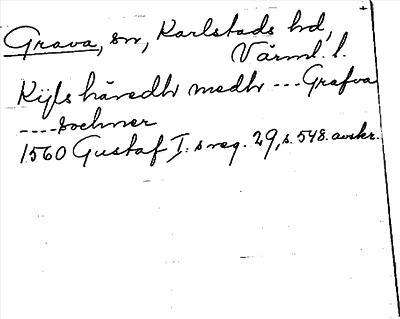 Grava, sn, Karlstads hd,
Värml. l.
Kijls häredh medh --- Grafva
---- sochner
1560 Gustaf I:s reg. 29, s. 548. avskr.